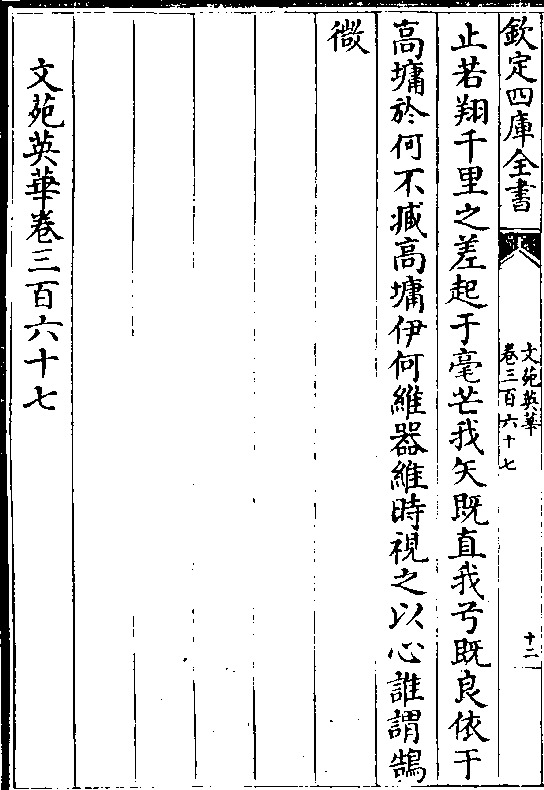 欽定四庫全書
文苑英華
卷三百六十七
十二
止若翔千里之差起于毫芒我矢既直我弓既良依于
高墉於何不臧高墉伊何維器維時視之以心誰謂鵠
微
文苑英華卷三百六十七